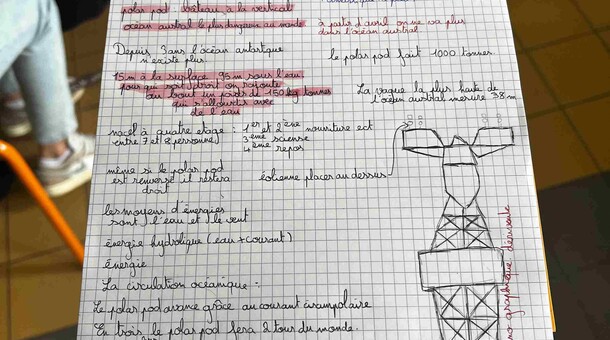 polar pod : bateau à la vertical
océan austral le plus dangereux au monde
à partir d'avril on ne va plus
dans l'océan austral
Depuis 3ans l'océan antartique
n'existe plus.
le polar pod fait 1000 tonnes.
15 m à la surface, 95 m sous l'eau.
pour qui soit droit on rajoute
au bout un poids de 150 kg tonnes
qui s'allourdis avec
de l'eau
La vague la plus haute de
l'océan austral mesure 38 m
nacel à quatre etage : 1er et 2ème nouriture ect
entre 7 et 8 personnes)
3ème sciense
4ème repos
même si le polar pod
est renversé il restera
droit
éolienne placer au dessus
les moyens d'énergies
sont l'eau et le vent
énergie hydrolique (eau + courant)
énergie
La circulation océanique :
Le polar pod avance grâce au courant circumpolaire
En trois le polar pod fera 2 tours du monde.
océanographique dérivante